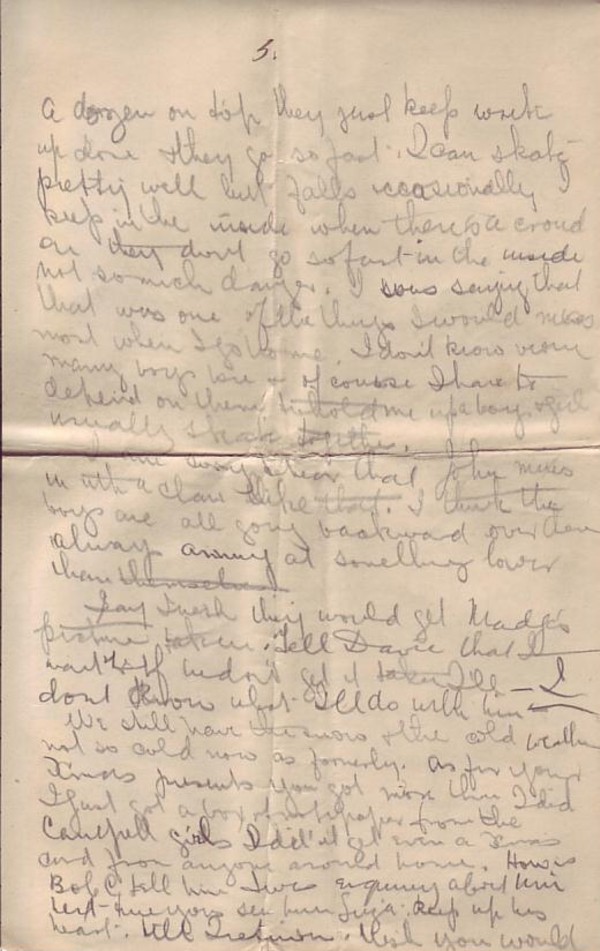 5.
a dozen on top they just keep
up done & they go so fast. I can skate
pretty well but falls occasionally I
keep in the inside when there is a croud
they don't go so fast in the inside
not so much danger. I was saying that
that was one of the things I would miss
most when I go home. I don't know very
many boys here & of course I have to
depend on them to hold me up a boy & girl
usually skate together.
I am sorry to hear that John mixes
in with a class like that. I think the
boys are all going backward over there
always at something lower
than themselves
Say I wish they would get Madge's
picture taken. Tell Davie that I
want it If he don't get it taken I'll — I
dont know what I'll do with him
We still have the snow & the cold weather
not so cold now as formerly. As for your
Xmas presents you got more than I did
I just got a box of notepaper from the
Campbell girls I did'nt get even a Xmas
card from anyone around home. How is
Bob C. tell him I was enquiring about him
next time you see him keep up his
heart. Wish you would